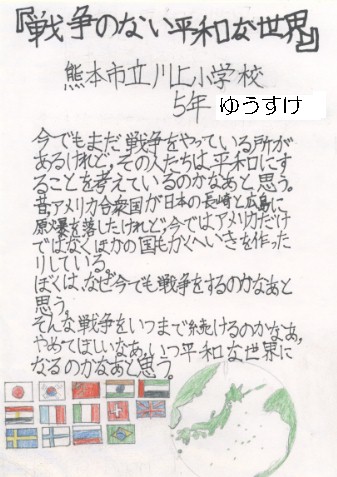 『戦争のない平和な世界』
熊本市立川上小学校
5年 ゆうすけ
今でもまだ戦争をやっている所が
あるけれど、その人たちは、平和にす
ることを考えているのかなあと思う。
昔、アメリカ合衆国が日本の長崎と広島に
原爆を落したけれど、今ではアメリカだけ
ではなくほかの国もかくへいきを作った
りしている。
ぼくは、なぜ今でも戦争をするのかなあと
思う。
そんな戦争をいつまで続けるのかなあ、
やめてほしいなあ、いつ平和な世界に
なるのかなあと思う。